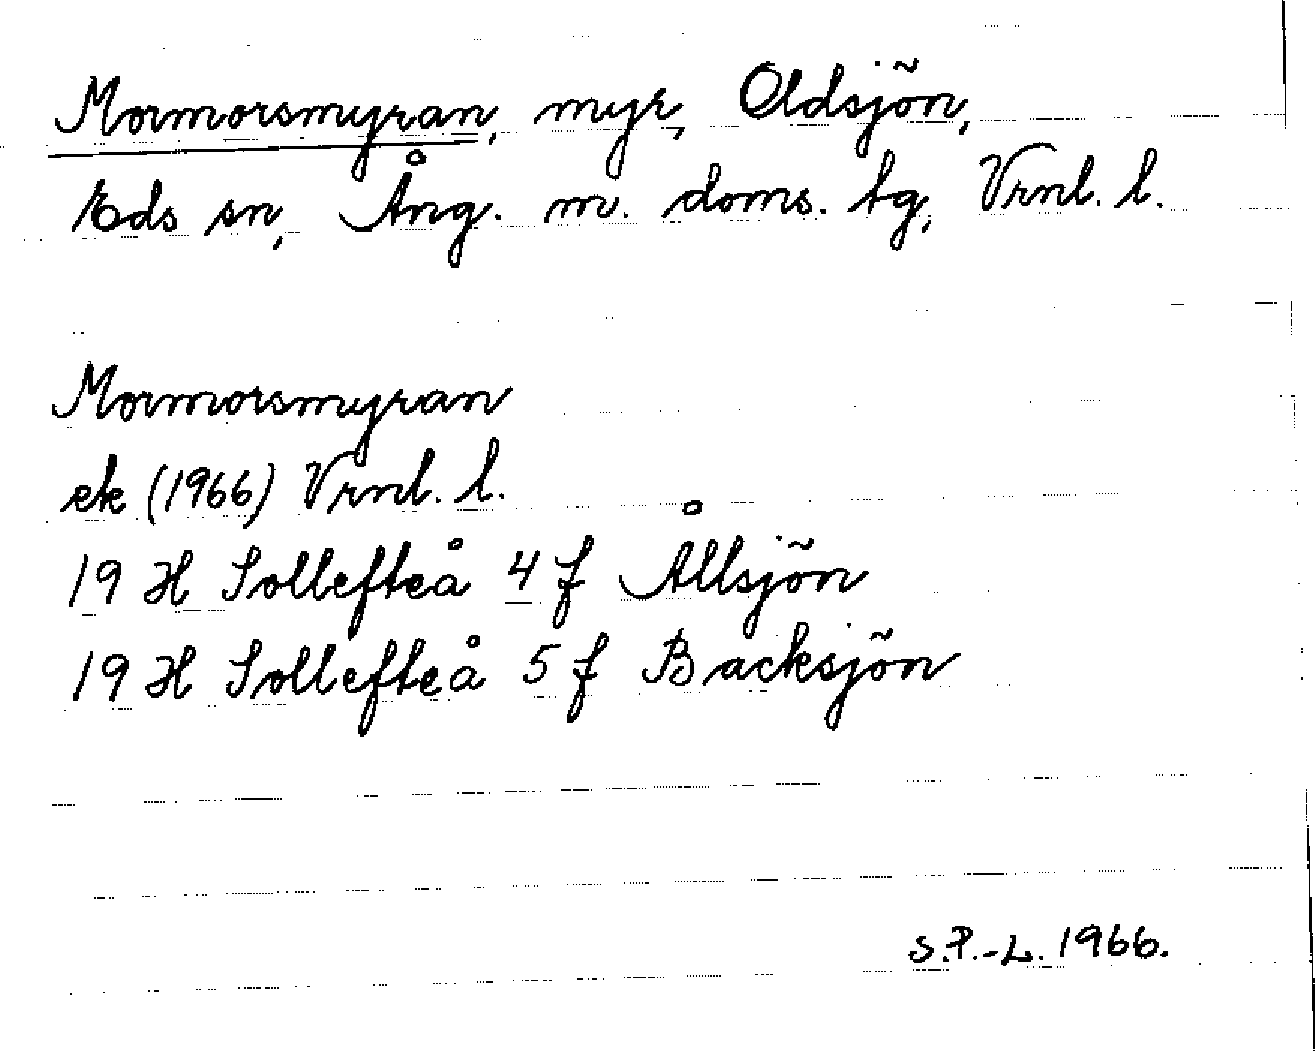 Mormorsmyran, myr, Oldsjön,
Eds sn, Ång. m. doms. tg, Vrnl. l.
Mormorsmyran
ek (1966) Vrnl. l.
19 H Sollefteå 4 f Ållsjön
19 H Sollefteå 5 f Backsjön
S.P.-L. 1966.